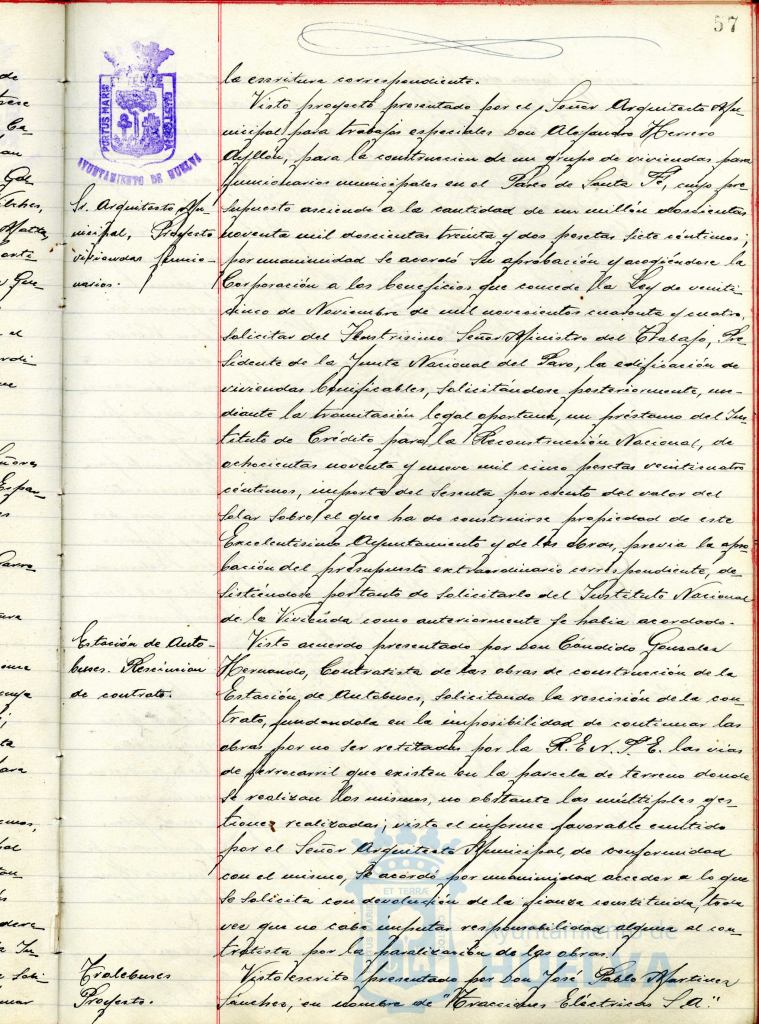 57
PORTUS MARIS
ET TERRÆ CUSTODIA
AYUNTAMIENTO DE HUELVA
la escritura correspondiente.
Sr. Arquitecto Mu-
nicipal, Proyecto
viviendas funcio-
narios.
Visto proyecto presentado por el Señor Arquitecto Mu-
nicipal para trabajos especiales Don Alejandro Herrero
Ayllón, para la construccion de un grupo de viviendas para
funcionarios municipales en el Paseo de Santa Fe, cuyo pre
supuesto asciende a la cantidad de un millón doscientas
noventa mil doscientas treinta y dos pesetas siete céntimos;
por unanimidad se acordó su aprobación y acogiéndose la
Corporación a los beneficios que concede la Ley de veinti-
cinco de Noviembre de mil novecientos cuarenta y cuatro,
solicitar del Ilustrisimo Señor Ministro del Trabajo, Pre
sidente de la Junta Nacional del Paro, la edificación de
viviendas bonificables, solicitándose posteriormente, me-
diante la tramitación legal oportuna, un préstamo del Ins
tituto de Crédito para la Reconstrucción Nacional, de
ochocientas noventa y nueve mil cinco pesetas veinticuatro
céntimos, importe del sesenta por ciento del valor del
solar sobre el que ha de construirse propiedad de este
Excelentisimo Ayuntamiento y de las obras, previa la apro
bación del presupuesto extraordinario correspondiente, de-
sistiéndose por tanto de solicitarlo del Instituto Nacional
de la Vivienda como anteriormente se habia acordado.
Estación de Auto-
buses. Rescincion
de contrato.
Visto acuerdo presentado por Don Cándido Gonzalez
Hernando, Contratista de las obras de construcción de la
Estación de Autobuses, solicitando la rescisión de la con-
trato, fundandola en la imposibilidad de continuar las
obras por no ser retiradas por la R.E.N.F.E. las vias
de ferrocarril que existen en la parcela de terreno donde
se realizan las mismas, no obstante las múltiples ges-
tiones realizadas; visto el informe favorable emitido
por el Señor Arquitecto Municipal, de conformidad
con el mismo, se acordó por unanimidad acceder a lo que
se solicita con devolución de la fianza constituida, toda
vez que no cabe imputar responsabilidad alguna al con-
tratista por la paralización de las obras.
Trolebuses
Proyecto.
Visto escrito presentado por Don José Pablo Martinez
Sánchez, en nombre de "Tracciones Eléctricas S.A."
Ayuntamiento de
HUELVA